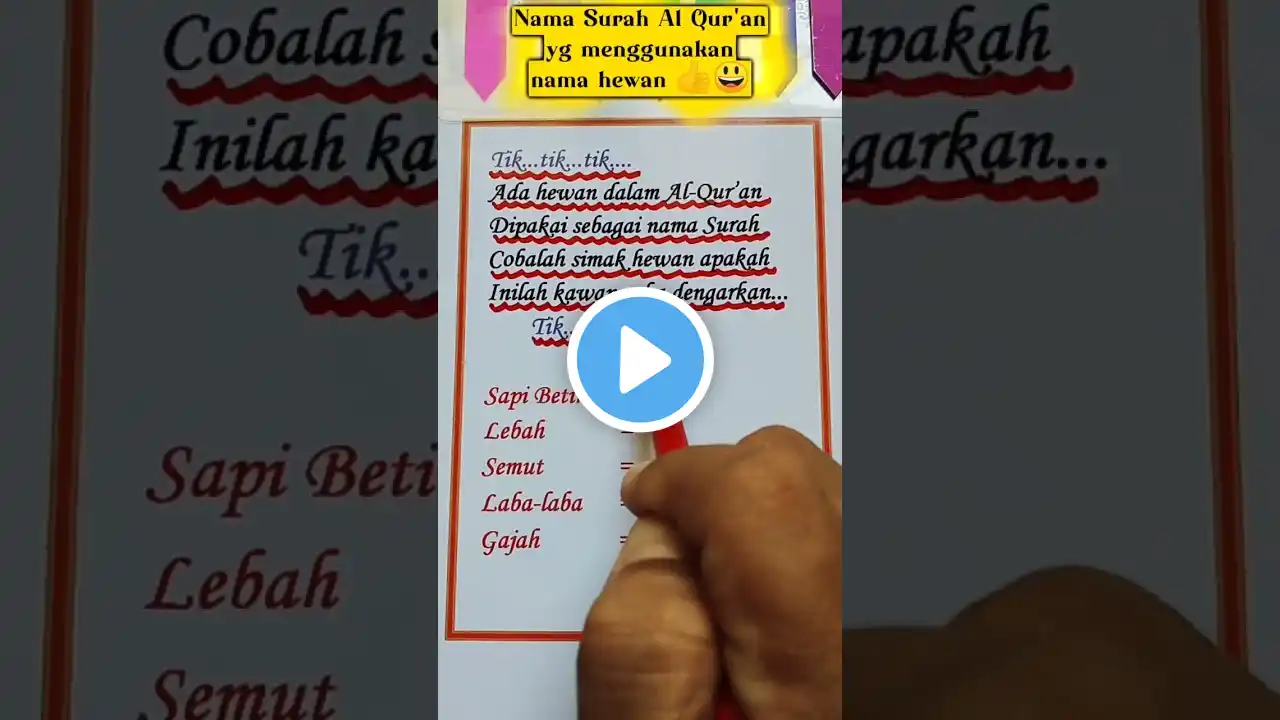 Nama Surah Al Qur'an
yg menggunakan
nama hewan 👍😃
Tik...tik...tik....
Ada hewan dalam Al-Qur'an
Dipakai sebagai nama Surah
Cobalah simak hewan apakah
Inilah dengarkan...
Tik..
Sapi
Lebah =
Semut =
Laba-laba =
Gajah =
Cobalah
apakah
Inilah
Tik..
Sapi
Lebah
Semut